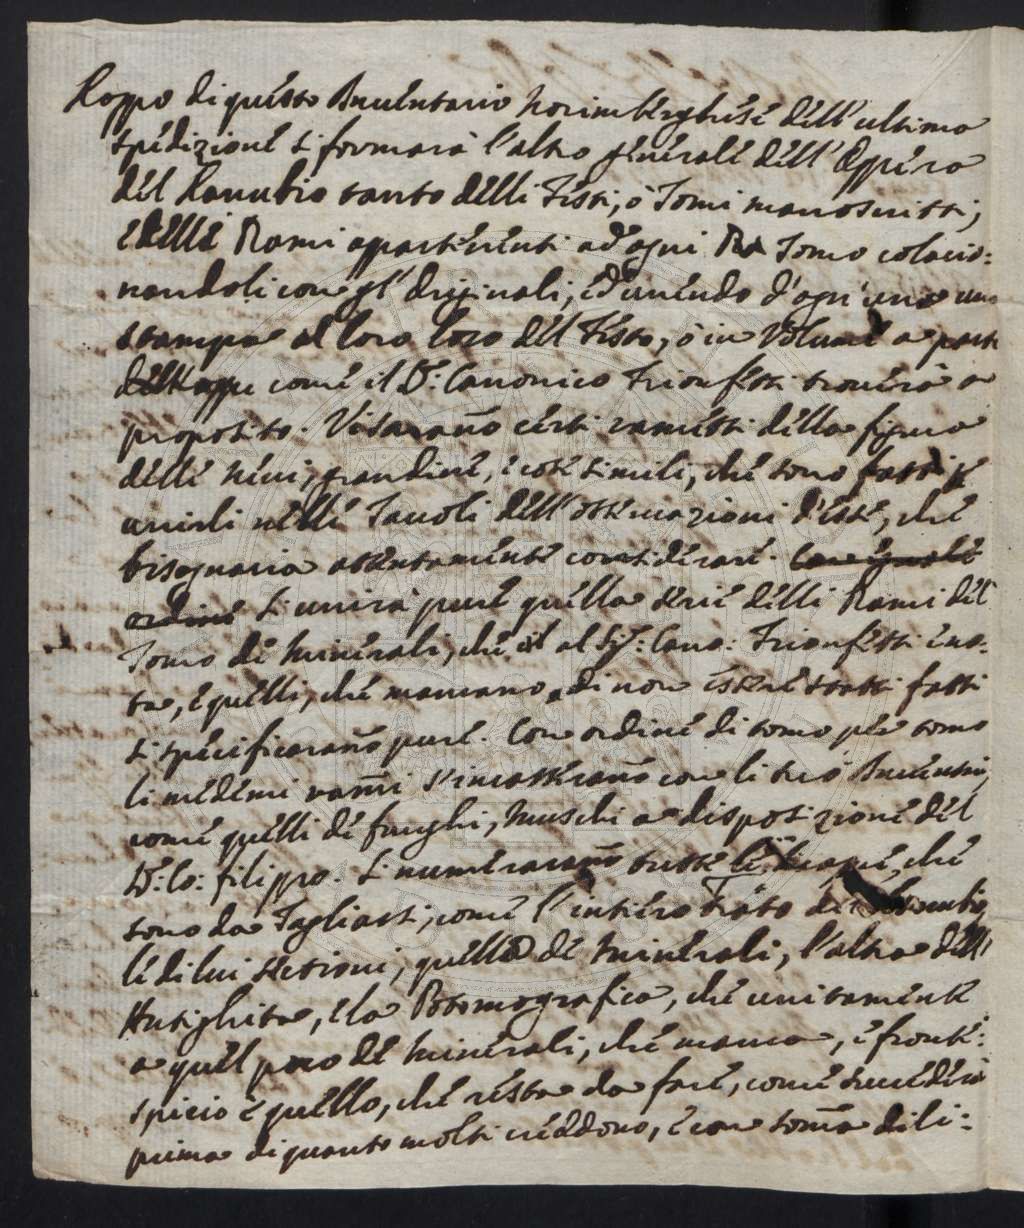 Doppo di questo Inventario Norimberghese dell'ultima
spedizione si formarà l'altro generale dell'Oppera
del Danubio tanto delli Testi, ò Tomi manoscritti,
e delli Rami appartenenti ad ogni Tomo colacio:
nandoli con gl'Originali, ed unendo d'ogn'uno una
stampa al loro loco del Testo, ò in Volume a parte
come il D.: Canonico Trionfetti troverà a
proposito. Vi saraño certi rametti della figura
delle nevi, grandine, e cose simili, che sono fatti p
unirli nelle Tavoli dell'osservazioni d'esse, che
bisognaria attentamente considerare. Con
ordine Si unirà pure quella serie delli Rami del
Tomo de Minerali, che al Sig.: Cano: Trionfetti è no:
ta, e quelli, che mancano di non essere stati fatti
si specificaraño pure. Con ordine di tomo per tomo
li medemi rami s'incasseraño con li suoi Inventarij
come quelli de funghi, Muschi a disposizione del
D.: Co: filippo. Si numeraraño tutte le che
sono da Tagliarsi, come l'intiero
le di lui setioni, quella de Minerali, l'altra dell'
Antighita, e la Potomografica, che unitamente
a quel poco de Minerali, che manca, e fronte:
spicio è quello, che resta da fare, come succederà
prima di quanto molti creddono, e con soma dili: